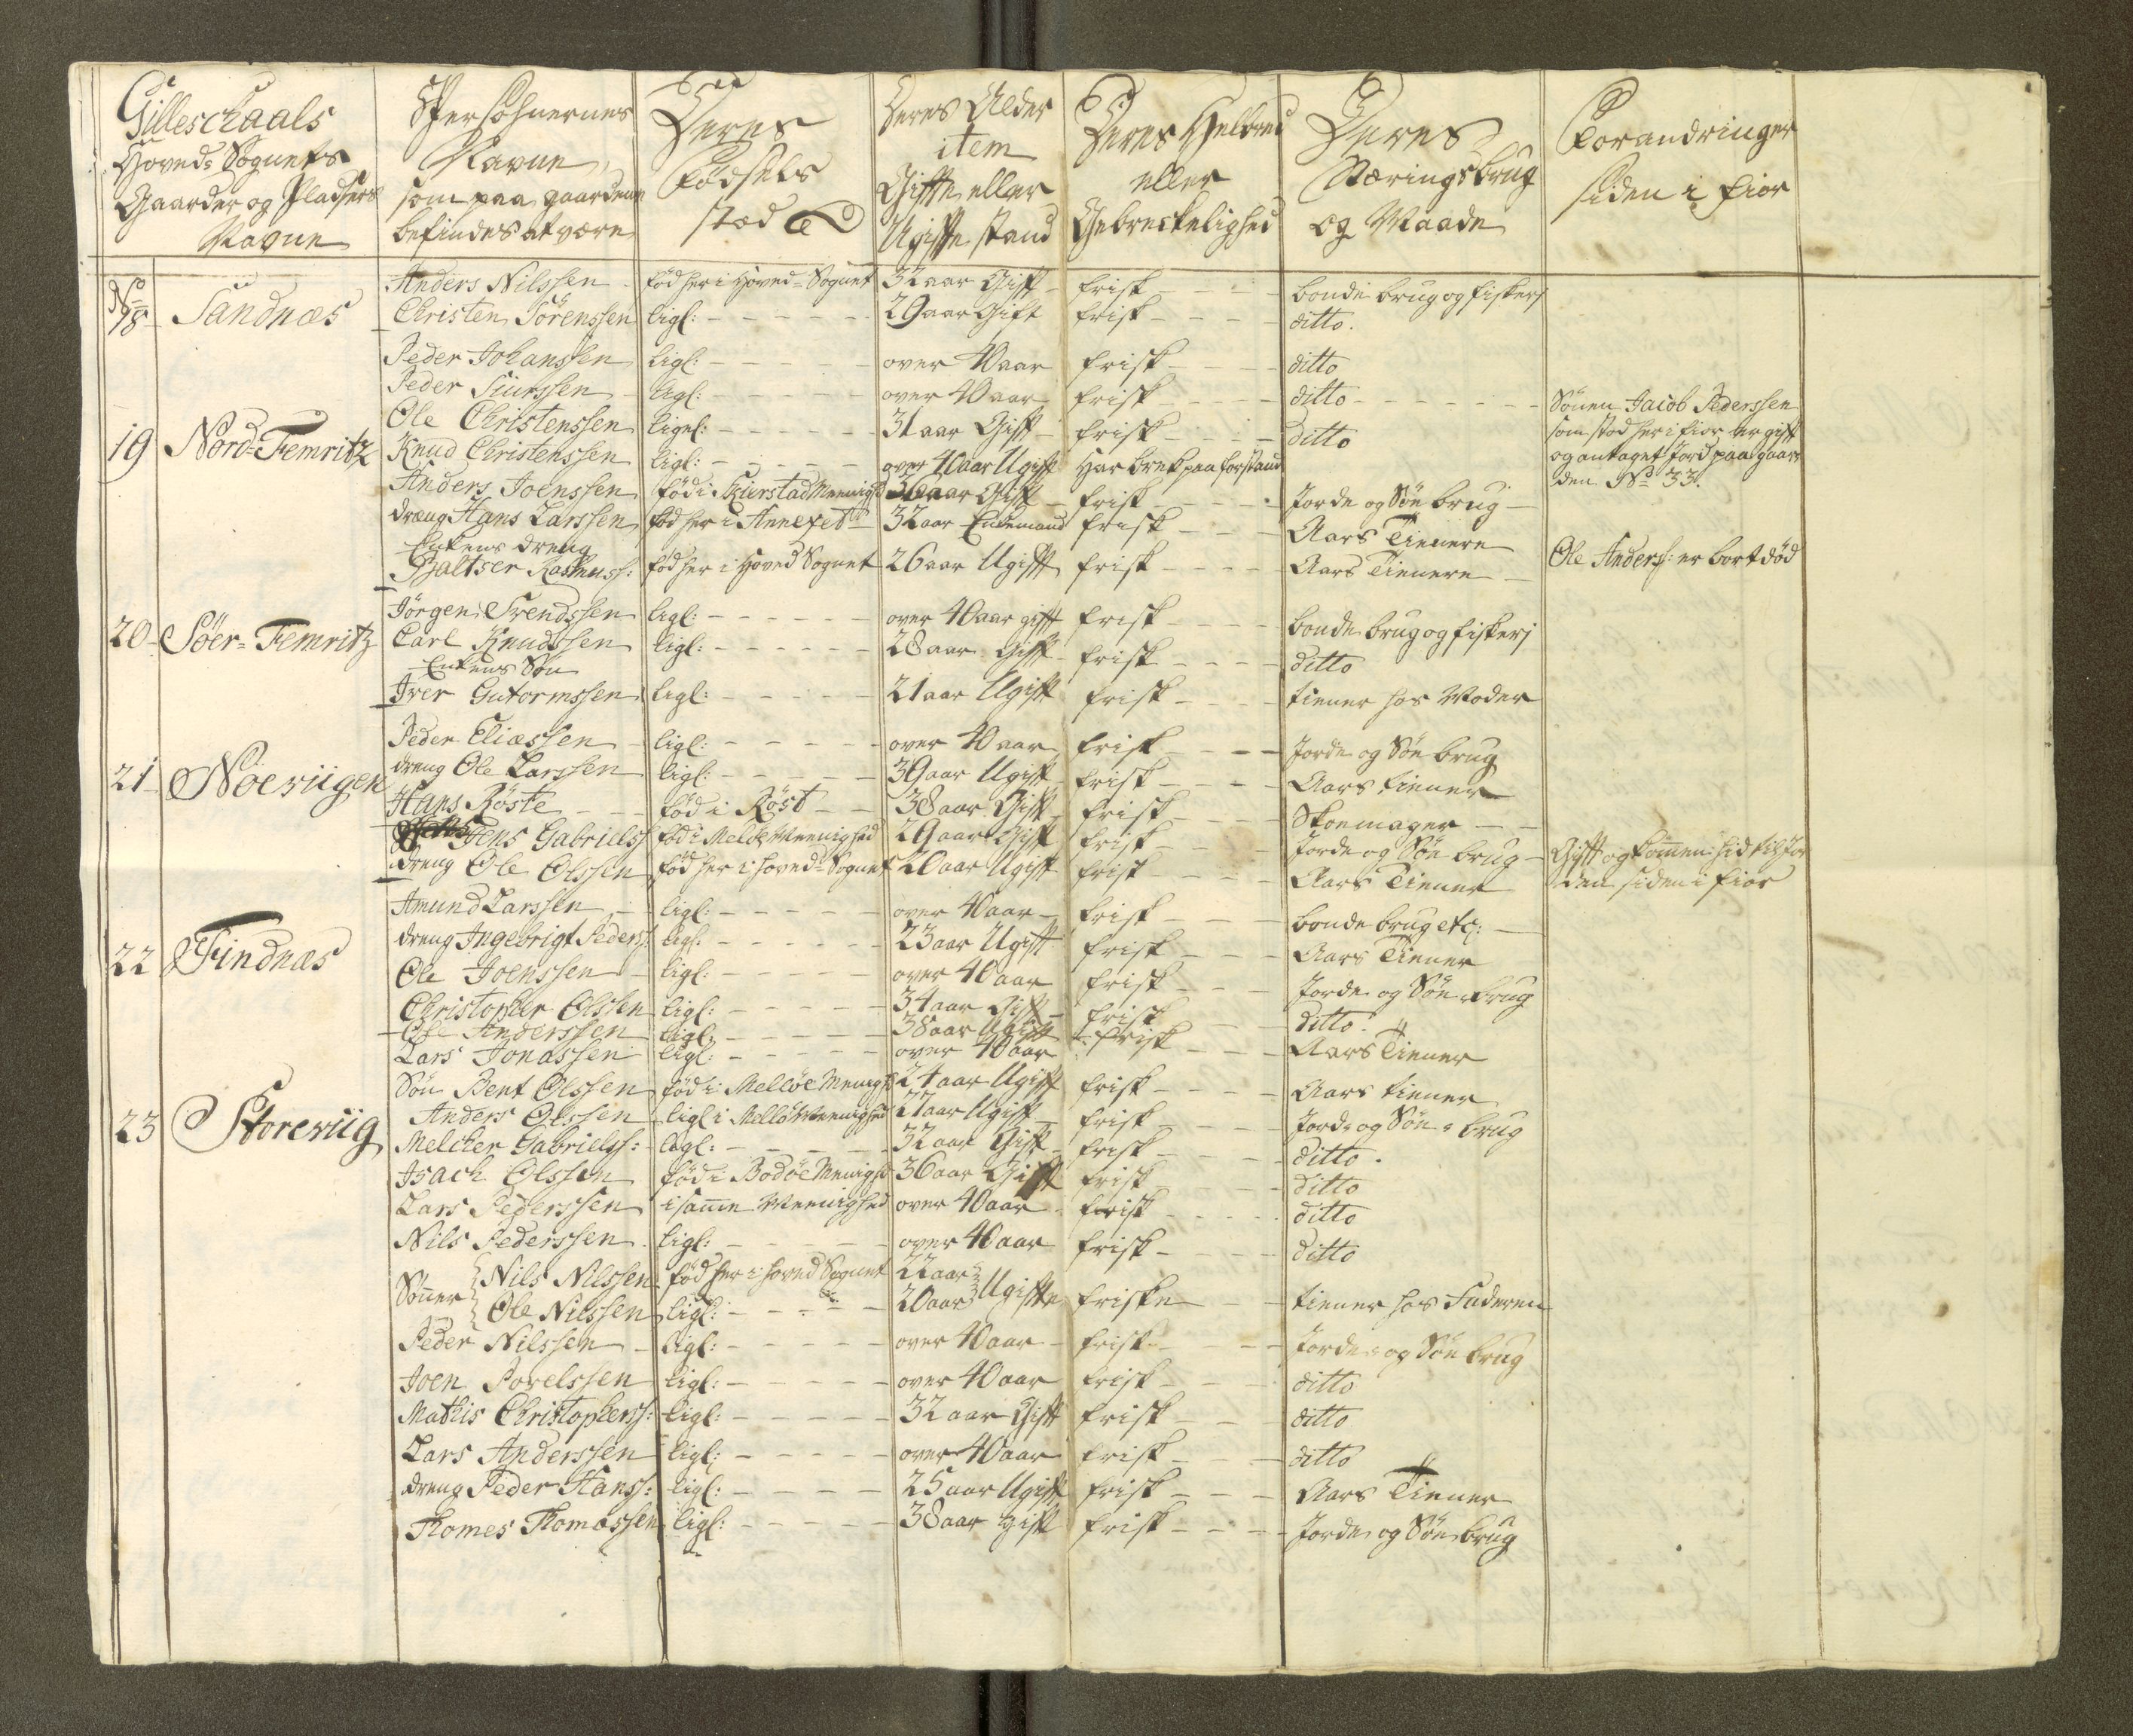 Gilleschaals
Hoved-Sognets
Gaarder og Pladsers
Navne
Persohnernes
Navne,
som paa gaardene
befindes at være
Deres
Fødsels
stæd
Deres Alder
item
Gifte eller
Ugifte stand
Deres Helbred
eller
Gebreckelighed
Deres
Næringsbrug
og Maade
Forandringer
siden i fior
No 18 Sandnæs
Anders Nilssen fød her i Hoved-Sognet 32 aar Gift frisk bonde brug og fiskerj
Christen Sörenssen ligl: 29 aar Gift frisk ditto.
Peder Johanssen ligl: over 40 aar frisk ditto
Peder Siurssen ligl: over 40 aar frisk ditto Sönen Jacob Pederssen
som stod her i fior er gift
og antaget Jord paa gaar-
den No 33.
19 Nord-Femritz
Ole Christenssen ligel: 31 aar Gift frisk ditto
Knud Christenssen ligl: over 40 aar Ugift Har brek paa forstand
Anders Joenssen fød i Skierstad Menigh 36 aar Gift frisk Jorde og Söe brug
dreng Hans Larssen fød her i Annexet 32 aar Enkemand frisk Aars Tienere
Enkens dreng
Baltser Rasmuss: fød her i Hoved Sognet 26 aar Ugift frisk Aars Tienere Ole Anderss: er bortdød
20 Söer-Femritz
Jörgen Trendssen ligl: over 40 aar gift frisk bonde brug og fiskerj
Carl Knudssen ligl: 28 aar Gift frisk ditto
Enkens Sön
Iver Gutormssen ligl: 21 aar Ugift frisk tiener hos Moder
21 Nöeviigen
Peder Eliassen ligl: over 40 aar frisk Jorde og Söe brug
dreng Ole Larssen ligl: 39 aar Ugift frisk Aars tiener
Hans Röste fød i Röst 38 aar Gift frisk Skoemager
Jens Gabrielss fød i Melöe Menighed 29 aar Gift frisk Jorde og Söe brug Gift og kommen hid til Jor
den siden i fior
dreng Ole Olssen fød her i Hoved-Sognet 20 aar Ugift frisk Aars Tiener
22 Findnæs
Amund Larssen ligl: over 40 aar frisk bonde brug etc:
dreng Ingebrigt Pederss: ligl: 23 aar Ugift frisk Aars Tiener
Ole Joenssen ligl: over 40 aar frisk Jorde og Söe brug
Christopher Olssen ligl: 34 aar Gift frisk ditto.
Ole Anderssen ligl: 38 aar Ugift frisk Aars Tiener
23 Storeviig
Lars Jonassen ligl: over 40 aar
Sön Bent Olssen fød i Mellöe Menigh 24 aar Ugift frisk Aars tiener
Anders Olssen ligl i Mellö Menighed 27 aar Ugift frisk Jord- og Söe-brug
Melcher Gabrielss: ligl: 32 aar Gift frisk ditto.
Isach Olssen fød i Bodöe Menighd 36 aar Gift frisk ditto
Lars Pederssen i samme Menighed over 40 aar frisk ditto
Nils Pederssen ligl: over 40 aar frisk ditto
Sönner Nils Nilssen fød her i Hoved Sognet 22 aar Ugifte
Ole Nilssen ligl: 20 aar friske tiener hos Faderen
Peder Nilssen ligl: over 40 aar frisk Jorde og Söe brug
Joen Povelssen ligl: over 40 aar frisk ditto
Mathis Christopherss: ligl: 32 aar Gift frisk ditto
Lars Anderssen ligl: over 40 aar frisk ditto
dreng Peder Hanss: ligl: 25 aar Ugift frisk Aars Tiener
Thomes Thomassen ligl: 38 aar gift frisk Jorde og Söe brug